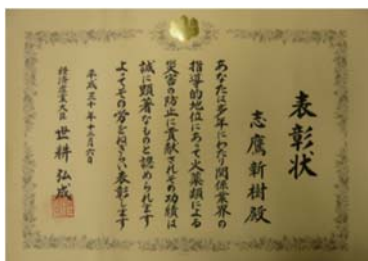 表彰状
志鷹新樹殿
あなたは多年にわたり関係業界の
指導的地位にあって火薬類による
災害の防止に貢献されその功績は
誠に顕著なものと認められます
よってその労をねぎらい表彰します
平成三十年十二月六日
経済産業大臣 世耕弘成